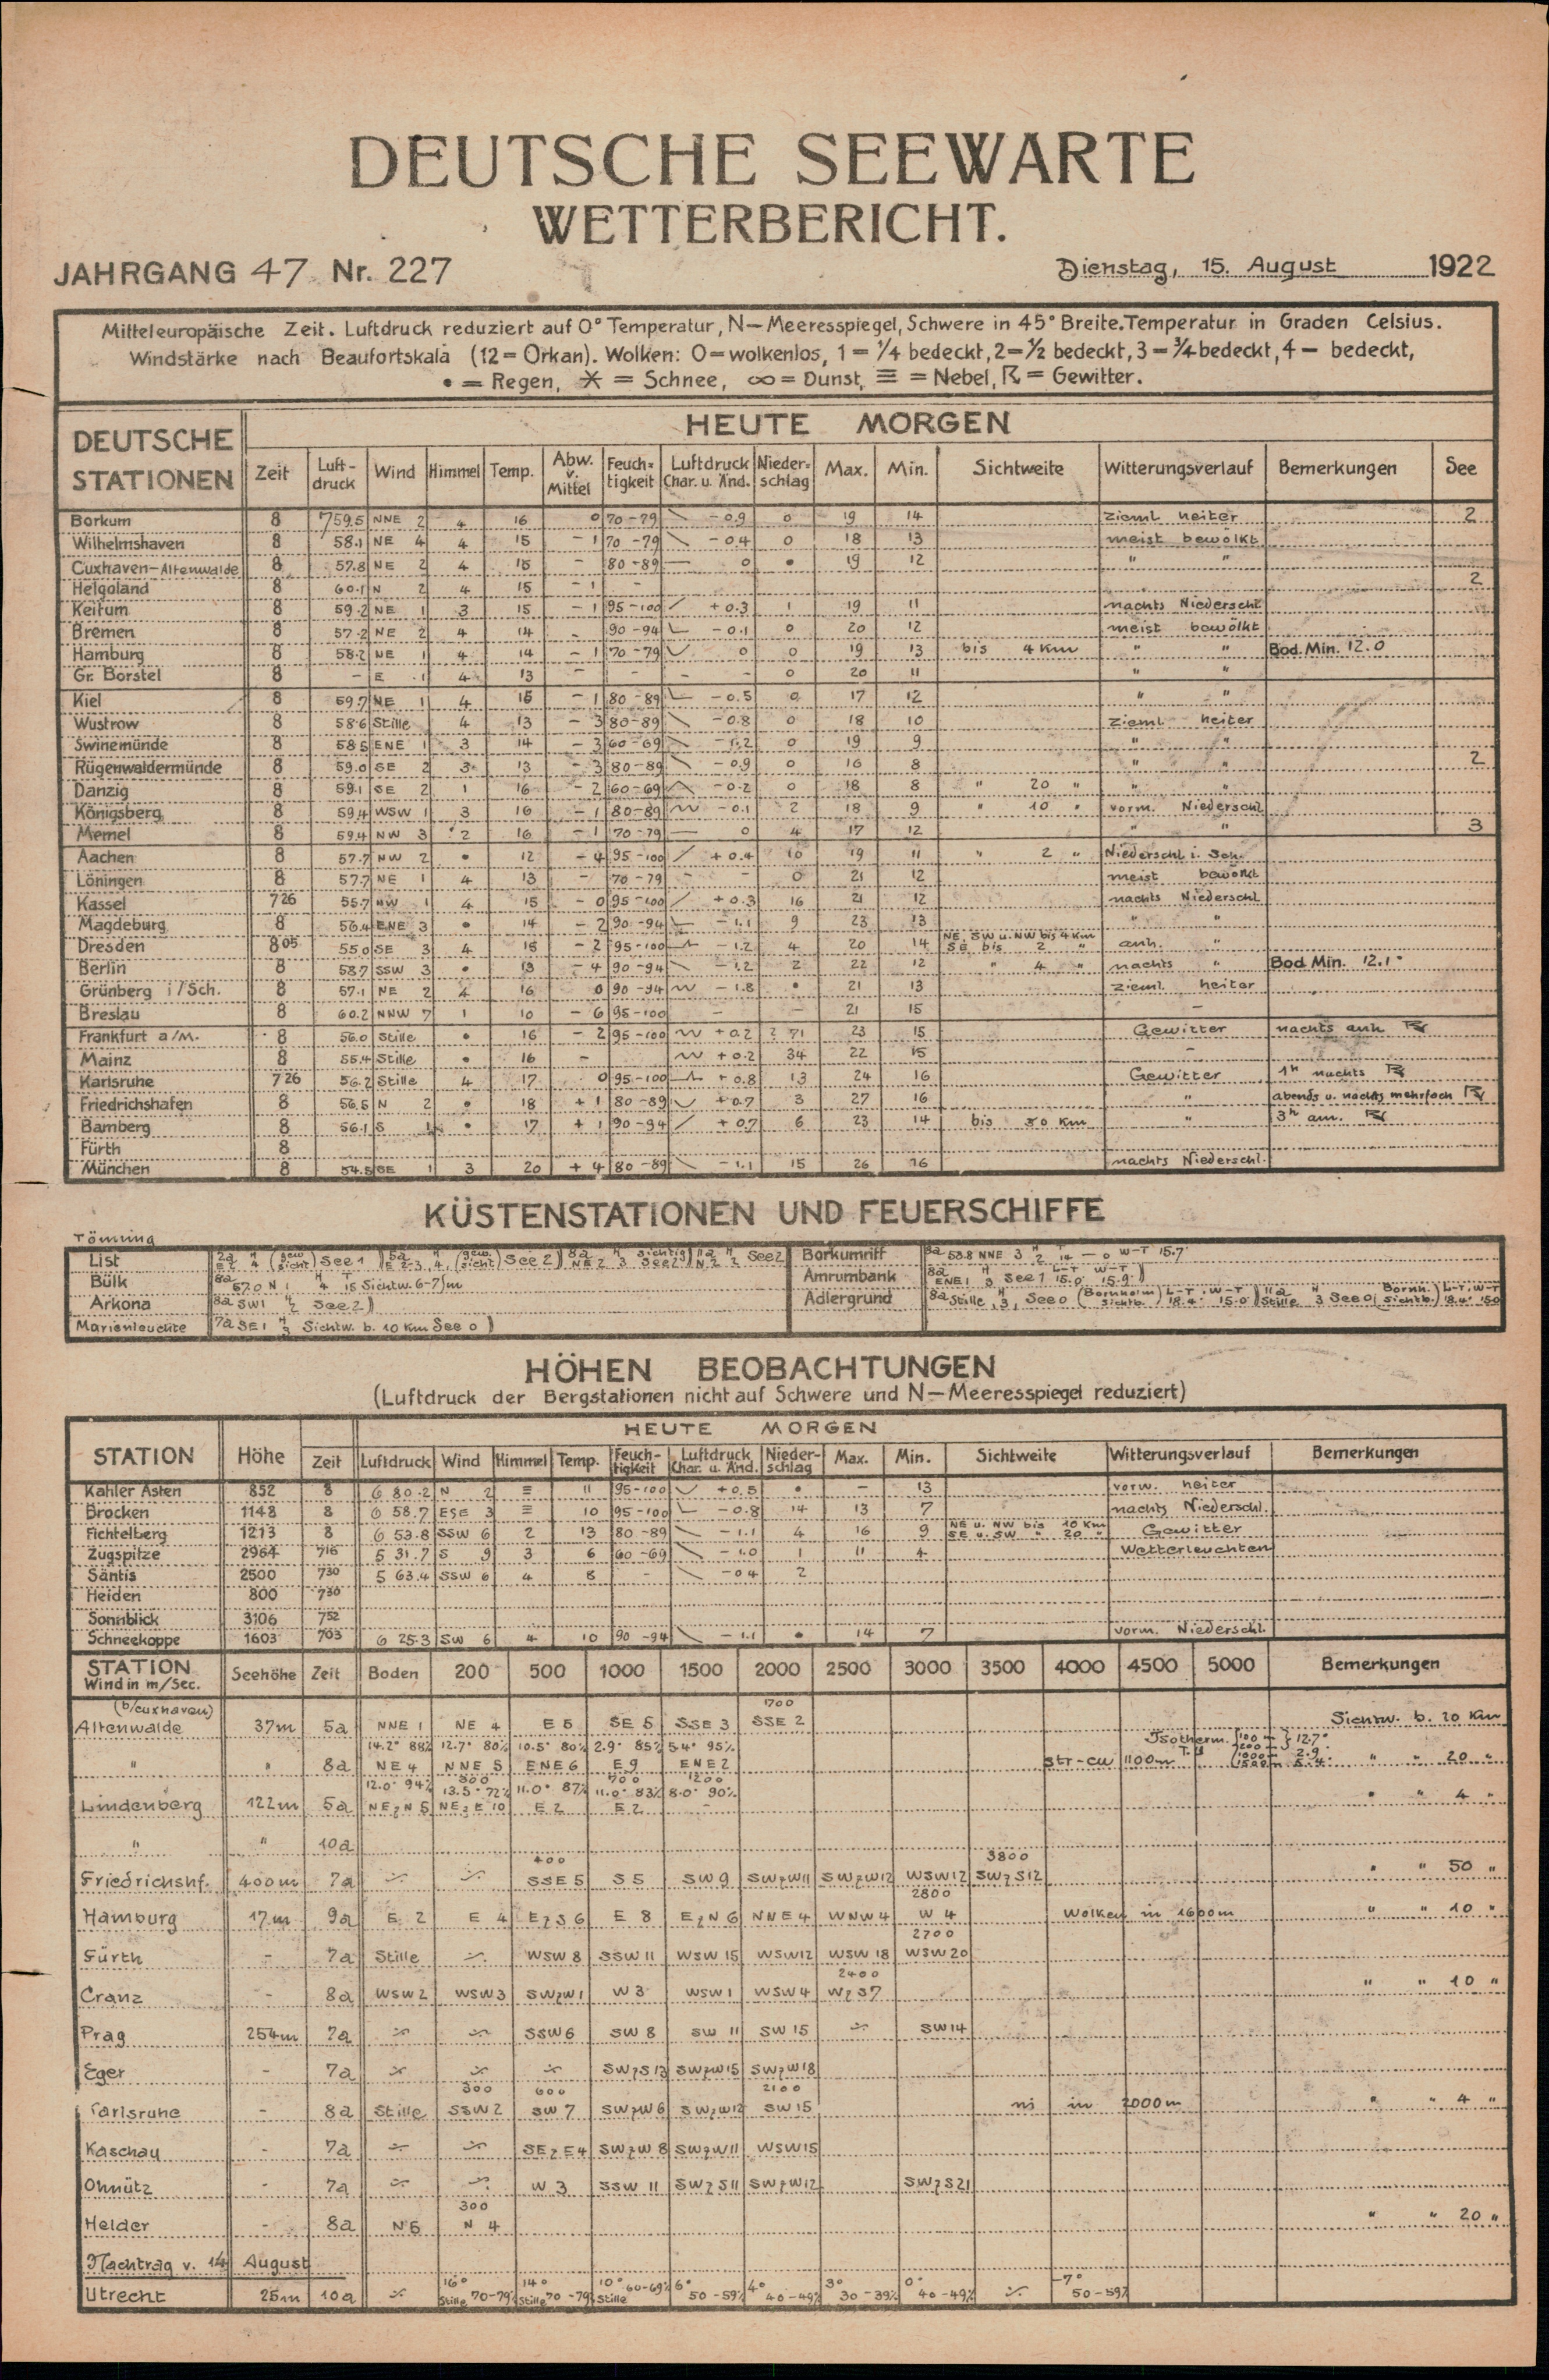 DEUTSCHE SEEWARTE
WETTERBERICHT.
JAHRGANG 47 Nr. 227 Dienstag, 15. August 1922
Mitteleuropäische Zeit. Luftdruck reduziert auf 0° Temperatur, N—Meeresspiegel, Schwere in 45° Breite. Temperatur in Graden Celsius.
Windstärke nach Beaufortskala (12 = Orkan). Wolken: 0 = wolkenlos, 1 = 1/4 bedeckt, 2 = 1/2 bedeckt, 3 = 3/4 bedeckt, 4 — bedeckt,
• = Regen, ✳ = Schnee, ∞ = Dunst, ≡ = Nebel, ☈ = Gewitter.
DEUTSCHE STATIONEN HEUTE MORGEN
Zeit Luft-druck Wind Himmel Temp. Abw. v. Mittel Feuch-tigkeit Luftdruck Char. u. Änd. Nieder-schlag Max. Min. Sichtweite Witterungsverlauf Bemerkungen See
Borkum 8 759.5 NNE 2 4 16 0 70-79 - 0.9 0 19 14 zieml heiter 2
Wilhelmshaven 8 58.1 NE 4 4 15 - 1 70-79 - 0.4 0 18 13 meist bewölkt
Cuxhaven-Altenwalde 8 57.8 NE 2 4 15 - 80-89 — 0 • 19 12 " "
Helgoland 8 60.1 N 2 4 15 - 1 - 2
Keitum 8 59.2 NE 1 3 15 - 1 95-100 + 0.3 1 19 11 nachts Niederschl
Bremen 8 57.2 NE 2 4 14 - 90-94 - 0.1 0 20 12 meist bewölkt
Hamburg 8 58.2 NE 1 4 14 - 1 70-79 0 0 19 13 bis 4 Km " " Bod. Min. 12.0
Gr. Borstel 8 - E 1 4 13 - - - - 0 20 11 " "
Kiel 8 59.7 NE 1 4 15 - 1 80-89 - 0.5 0 17 12 " "
Wustrow 8 58.6 Stille 4 13 - 3 80-89 - 0.8 0 18 10 zieml heiter
Swinemünde 8 58.5 ENE 1 3 14 - 3 60-69 - 1.2 0 19 9 " "
Rügenwaldermünde 8 59.0 SE 2 3 13 - 3 80-89 - 0.9 0 16 8 " " 2
Danzig 8 59.1 SE 2 1 16 - 2 60-69 - 0.2 0 18 8 " 20 " " "
Königsberg 8 59.4 WSW 1 3 16 - 1 80-89 - 0.1 2 18 9 " 10 " vorm. Niederschl
Memel 8 59.4 NW 3 2 16 - 1 70-79 — 0 4 17 12 " " 3
Aachen 8 57.7 NW 2 • 12 - 4 95-100 + 0.4 10 19 11 " 2 " Niederschl i. Sch.
Löningen 8 57.7 NE 1 4 13 - 70-79 - - 0 21 12 meist bewölkt
Kassel 7 26 55.7 NW 1 4 15 - 0 95-100 + 0.3 16 21 12 nachts Niederschl
Magdeburg 8 56.4 ENE 3 • 14 - 2 90-94 - 1.1 9 23 13 " "
Dresden 8 05 55.0 SE 3 4 15 - 2 95-100 - 1.2 4 20 14 NE, SW u. NW bis 4 Km SE bis 2 " anh. "
Berlin 8 58.7 SSW 3 • 13 - 4 90-94 - 1.2 2 22 12 " 4 " nachts " Bod Min. 12.1°
Grünberg i/Sch. 8 57.1 NE 2 4 16 0 90-94 - 1.8 • 21 13 zieml. heiter
Breslau 8 60.2 NNW 7 1 10 - 6 95-100 - - 21 15 -
Frankfurt a/M. 8 56.0 Stille • 16 - 2 95-100 + 0.2 71 23 15 Gewitter nachts anh ☈
Mainz 8 55.4 Stille • 16 - + 0.2 34 22 15 -
Karlsruhe 7 26 56.2 Stille 4 17 0 95-100 + 0.8 13 24 16 Gewitter 1h nachts ☈
Friedrichshafen 8 56.5 N 2 • 18 + 1 80-89 + 0.7 3 27 16 " abends u. nachts mehrfach ☈
Bamberg 8 56.1 S 1 • 17 + 1 90-94 + 0.7 6 23 14 bis 50 Km " 3h am. ☈
Fürth 8
München 8 54.5 SE 1 3 20 + 4 80-89 - 1.1 15 26 16 nachts Niederschl.
KÜSTENSTATIONEN UND FEUERSCHIFFE
Tönning
List See 1 See 2 See 2 See 2 Borkumriff 8a 58.8 NNE 3 2 14 — 0 W-T 15.7
Bülk 8a 57.0 N 1 4 15 Sichtw. 6-7 Amrumbank 8a ENE 1 3 See 1 L-T 15.0 W-T 15.9
Arkona 8a SW 1 2 See 2 Adlergrund 8a Stille, 3, See 0 (Bornholm sichtb.) L-T 18.4 W-T 15.0 11a Stille 3 See 0 (Bornh. sichtb.) L-T 18.4 W-T 15.0
Marienleuchte 7a SE 1 3 Sichtw. b. 10 Km See 0
HÖHEN BEOBACHTUNGEN
(Luftdruck der Bergstationen nicht auf Schwere und N—Meeresspiegel reduziert)
HEUTE MORGEN
STATION Höhe Zeit Luftdruck Wind Himmel Temp. Feuch-tigkeit Luftdruck Char. u. Änd. Nieder-schlag Max. Min. Sichtweite Witterungsverlauf Bemerkungen
Kahler Asten 852 8 6 80.2 N 2 ≡ 11 95-100 + 0.5 • - 13 vorw. heiter
Brocken 1148 8 6 58.7 ESE 3 ≡ 10 95-100 - 0.8 14 13 7 nachts Niederschl.
Fichtelberg 1213 8 6 53.8 SSW 6 2 13 80-89 - 1.1 4 16 9 NE u. NW bis 10 Km SE u. SW " 20 " Gewitter
Zugspitze 2964 7 16 5 31.7 S 9 3 6 60-69 - 1.0 1 11 4 Wetterleuchten
Säntis 2500 7 30 5 63.4 SSW 6 4 8 - - 0.4 2
Heiden 800 7 30
Sonnblick 3106 7 52
Schneekoppe 1603 7 03 6 25.3 SW 6 4 10 90-94 - 1.1 • 14 7 vorm. Niederschl.
STATION Wind in m/Sec. Seehöhe Zeit Boden 200 500 1000 1500 2000 2500 3000 3500 4000 4500 5000 Bemerkungen
(b/Cuxhaven) 1700
Altenwalde 37m 5a NNE 1 NE 4 E 5 SE 5 SSE 3 SSE 2 Sichtw. b. 20 Km
14.2° 88% 12.7° 80% 10.5° 80% 2.9° 85% 5.4° 95% Isotherm. 12.7°
" " 8a NE 4 NNE 5 ENE 6 E 9 ENE 2 Str-cu 1100m " " 20 "
12.0° 94% 300 13.5° 72% 11.0° 87% 700 11.0° 83% 1200 8.0° 90%
Lindenberg 122m 5a NEzN 5 NEzE 10 E 2 E 2 - " " 4 "
" " 10a
400 3800
Friedrichshf. 400m 7a SSE 5 S 5 SW 9 SWzW 11 SWzW 12 WSW 12 SWzS 12 " " 50 "
2800
Hamburg 17m 9a E 2 E 4 EzS 6 E 8 EzN 6 NNE 4 WNW 4 W 4 Wolken in 1600m " " 10 "
2700
Fürth - 7a Stille WSW 8 SSW 11 WSW 15 WSW 12 WSW 18 WSW 20
2400
Cranz - 8a WSW 2 WSW 3 SWzW 1 W 3 WSW 1 WSW 4 WzS 7 " " 10 "
Prag 254m 7a SSW 6 SW 8 SW 11 SW 15 SW 14
Eger - 7a SWzS 13 SWzW 15 SWzW 18
300 600 2100
Karlsruhe - 8a Stille SSW 2 SW 7 SWzW 6 SWzW 12 SW 15 ni in 2000m " " 4 "
Kaschau - 7a SEzE 4 SWzW 8 SWzW 11 WSW 15
Olmütz - 7a W 3 SSW 11 SWzS 11 SWzW 12 SWzS 21
300
Helder - 8a N 5 N 4 " " 20 "
Nachtrag v. 14 August
16° 14° 10° 6° 4° 3° 0° -7°
Utrecht 25m 10a Stille 70-79% Stille 70-79% Stille 60-69% 50-59% 40-49% 30-39% 40-49% 50-59%